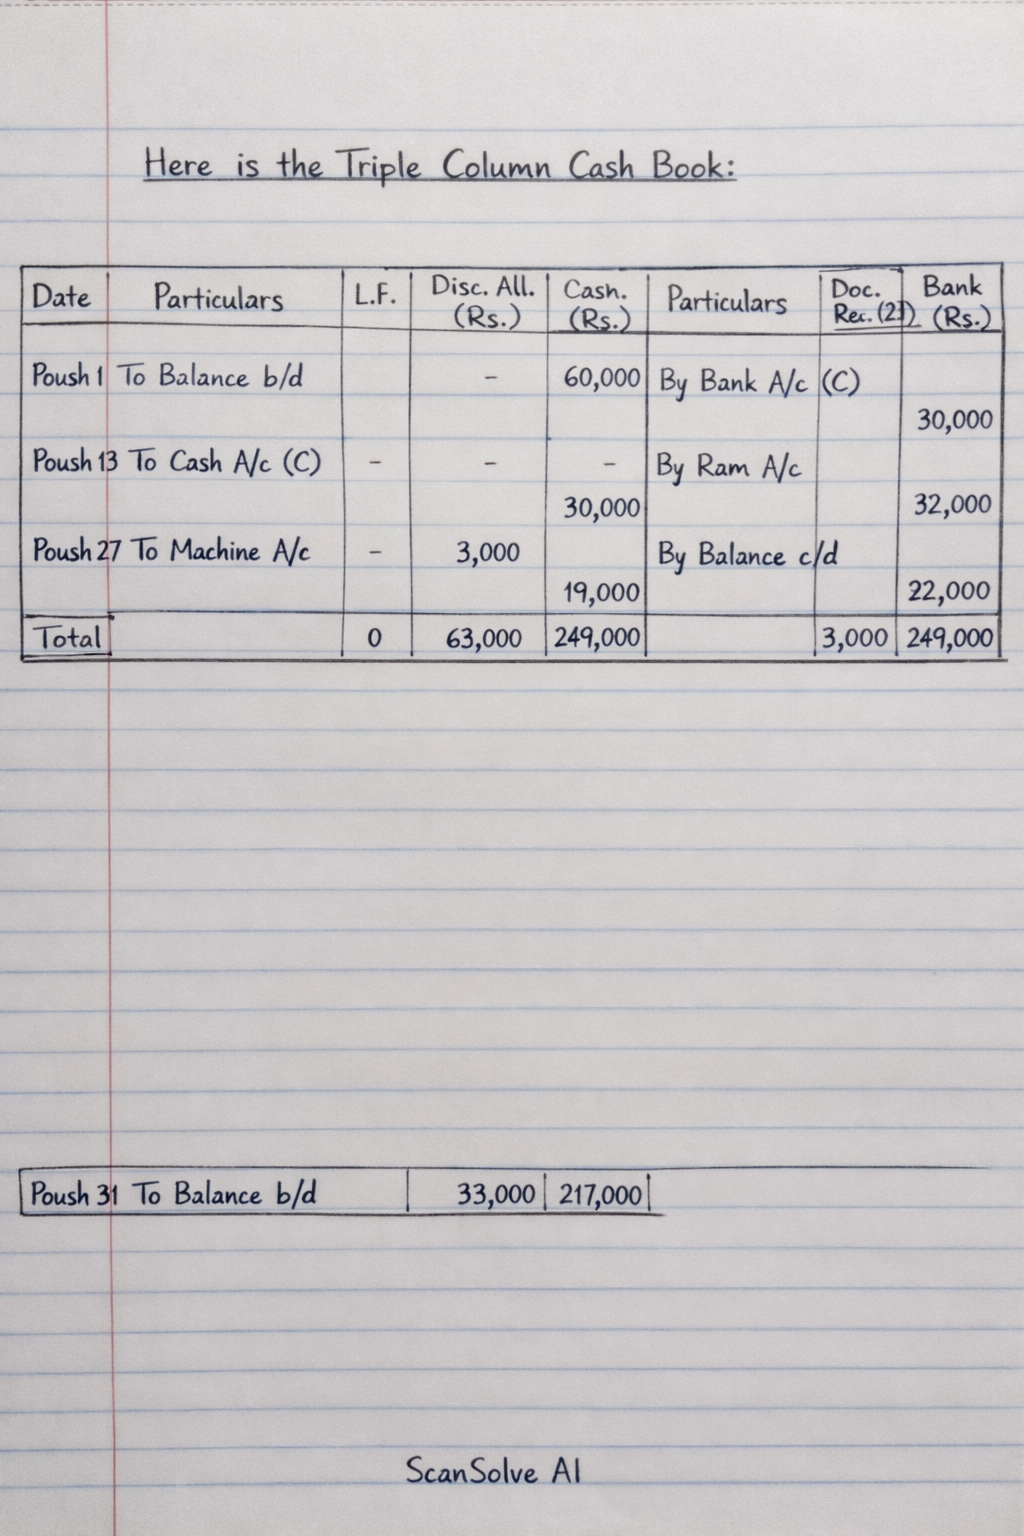 Here is the Triple Column Cash Book:
Date Particulars L.F. Disc. All. (Rs.) Cash. (Rs.) Particulars Doc. Rec. (21) Bank (Rs.)
Poush 1 To Balance b/d - 60,000 By Bank A/c (C)
30,000
Poush 13 To Cash A/c (C) - - - By Ram A/c
30,000 32,000
Poush 27 To Machine A/c - 3,000 By Balance c/d
19,000 22,000
Total 0 63,000 249,000 3,000 249,000
Poush 31 To Balance b/d 33,000 217,000
ScanSolve AI